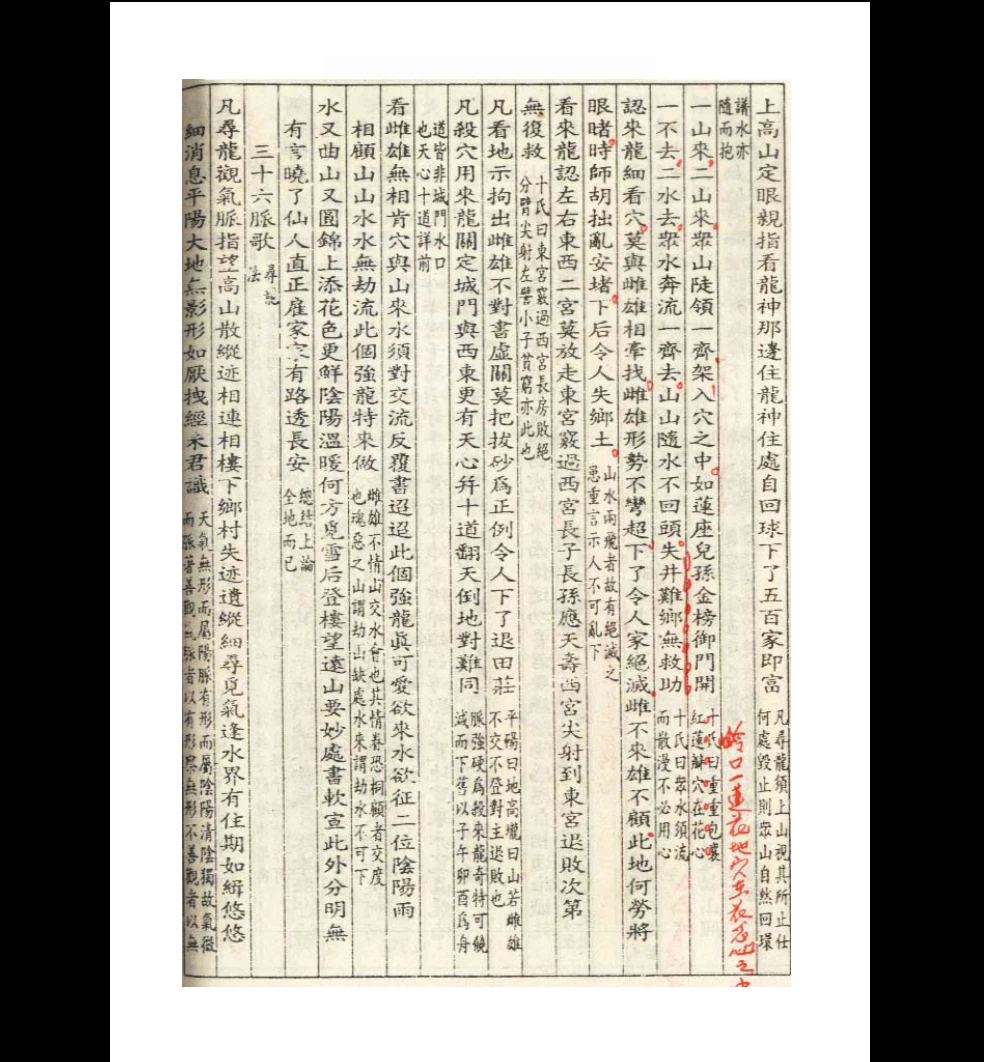 上高山定眼親指看龍神那邊住龍神住處自回球下了五百家即富
凡尋龍須上山視其所止住
何處毀止則衆山自然回環
議水亦
隨而抱
一山來二山來衆山陡領一齊架入穴之中如蓮座兒孫金榜御門開
十氏曰重重包裹
紅蓮 穴在花心
一不去二水去衆水奔流一齊去山山隨水不回頭失井難鄉無救助
十氏曰衆水須流
而散漫不必用心
認來龍細看穴莫與雌雄相牽找雌雄形勢不彎超下了令人家絕滅雌不來雄不顧此地何勞將
眼睹時師胡拙亂安堵下后令人失鄉土
山水兩飛者故有絕滅之
患重言示人不可亂下
看來龍認左右東西二宮莫放走東宮竅過西宮長子長孫應天壽西宮尖射到東宮退敗次第
無復救
十氏曰東宮竅過西宮長房敗絕
分臂尖射左臂小子貧窮亦此也
凡看地示拘出雌雄不對書虛關莫把拔砂爲正例令人下了退田莊
平陽曰地高壠曰山若雌雄
不交不登對主退敗也
凡殺穴用來龍關定城門與西東更有天心幷十道翻天倒地對難同
脈強硬爲殺來龍奇特可繞
減而下舊以子午卯酉爲舟
道皆非城門水口
也天心十道詳前
看雌雄無相肯穴與山來水須對交流反覆書迢迢此個強龍眞可愛欲來水欲征二位陰陽雨
相顧山山水水無劫流此個強龍特來做
雌雄不情山交水會也其情眷恐桐顧者交度
也魂惡之山謂劫山缺處水來謂劫水不可下
水又曲山又圓錦上添花色更鮮陰陽溫暖何方覓雪后登樓望遠山要妙處書軟宣此外分明無
有言曉了仙人直正雇家家有路透長安
總結上論
全地而已
三十六脈歌
尋龍
法
凡尋龍觀氣脈指望高山散縱迹相連相樓下鄉村失迹遺縱細尋覓氣逢水界有住期如緝悠悠
細消息平陽大地無影形如厭拽經未君識
天氣無形而屬陽脈有形而屬陰陽清陰獨故氣微
而脈著善觀氣脈者以有形 無形不善觀者以無